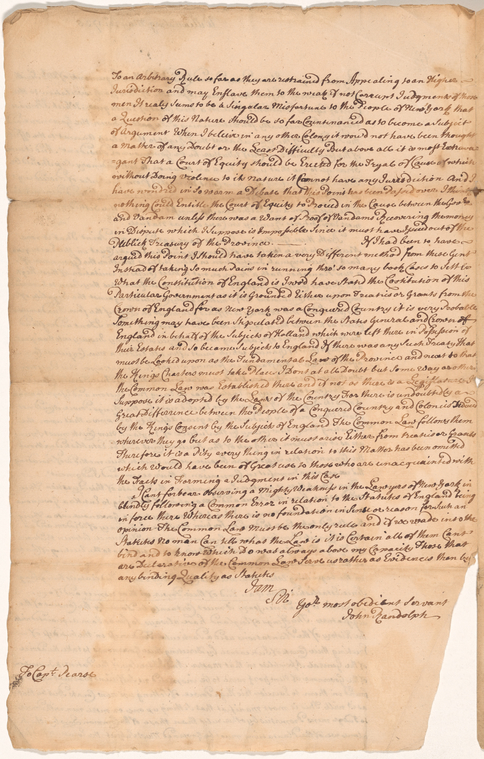 To an Arbitrary Rule so far as they are restrained from Appealing to an Higher
Jurisdiction and may Enslave them to the weak if not Corrupt Judgments of those
men It realy Seems to be a Singular Misfortune to the People of New York that
a Question of this Nature should be so far Countenanced as to become a Subject
of Argument When I believe in any other Colony it would not have been thought
a Matter of any Doubt or the Least Difficulty But above all it is most Extrava
gant That a Court of Equity should be Erected for the Tryal of a Cause of which
without Doing Violence to its Nature it Cannot have any Jurisdiction And I
have wondred in So warm a Debate that this Point has been passed over I think
nothing Could Entitle the Court of Equity to Proceed in the Cause between the
and Vandam unless there was a Want of Proof of Vandams Receiving the money
in Dispute which I Suppose is Impossible Since it must have Issued out of the
Publick Treasury of the Province If I had been to have
argued this Point I should have taken a very Different Method from these Gent
Instead of taking So much Pains in running thro' So many book Cases to Settle
What the Constitution of England is I wod have Stated the Constitution of this
Particular Government as it is Grounded Either upon Treaties or Grants from the
Crown of England for as New York was a Conquered Country it is very Probable
Something may have been Stipulated between the States General and the Crown of
England in behalf of the Subjects of Holland which were left there in Possession of
their Estates and So became Subjects to England If there was any Such Treaty that
must be Looked upon as the Fundamental Law of the Province and next to that
the Kings Charters must take Place I Dont at all Doubt but Some way or other
the Common Law was Established there and if not as there is a Legislature I
Suppose it is adopted by the Laws of the Country For there is undoubtedly a
Great Difference between the People of a Conquered Country and Colonies
by the Kings Consent by the Subjects of England The Common Law follows them
wherever they go but as to the other it must arise Either from treatis or Grants
Therefore it is a Pity every thing in relation to this Matter has been omitted
which Would have been of Great use to those who are unacquainted with
the Facts in Forming a Judgment in this Case
I Cant forbear observing a Mighty Weakness in the Lawyers of New York in
blindly following a Common Error in relation to the Statutes of England being
in force there Whereas there is no foundation in Sense or reason for Such an
opinion The Common Law Must be the only rule and if we wade into the
Statutes No man Can tell what the Law is it is Certain all of them Cant
bind and to know which Do was always above my Capacity Those that
are Declarative of the Common Law Serve us rather as Evidences than by
any binding Quality as Statutes
I am
Sr. Yor. most obedient Servant
John Randolph
To Capt. Pearse